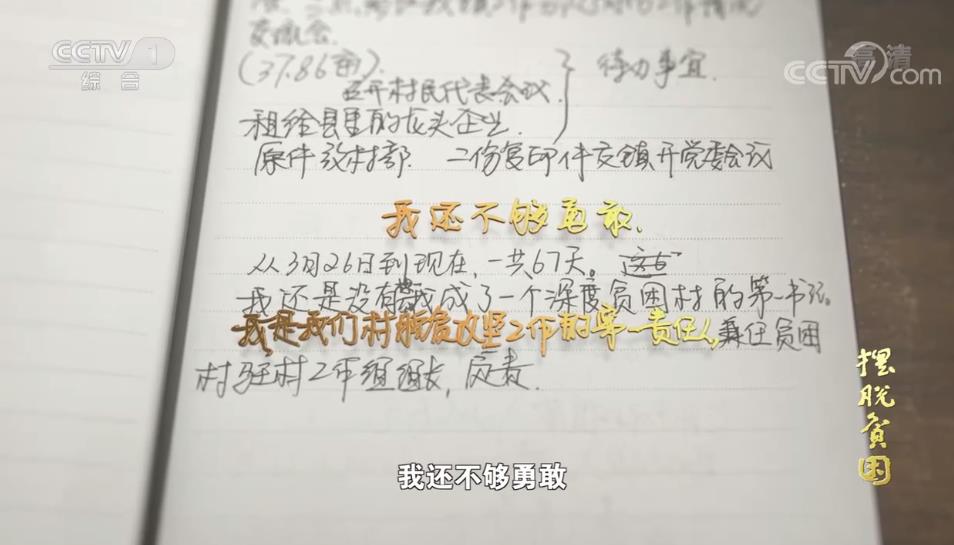 CCTV 1
综合
高清
CCTV.com
交流会.
(37.86亩).
召开村民代表会议.
待办事宜.
租给县里的龙头企业.
原件放村部. 二份复印件交镇开党委会议
我还不够勇敢.
从3月26日到现在, 一共67天。
我还是没有 成了一个深度贫困村的第一书记.
我是我们村脱贫攻坚工作的第一责任人, 兼任贫困
村驻村工作组组长, 负责.
摆脱贫困
我还不够勇敢